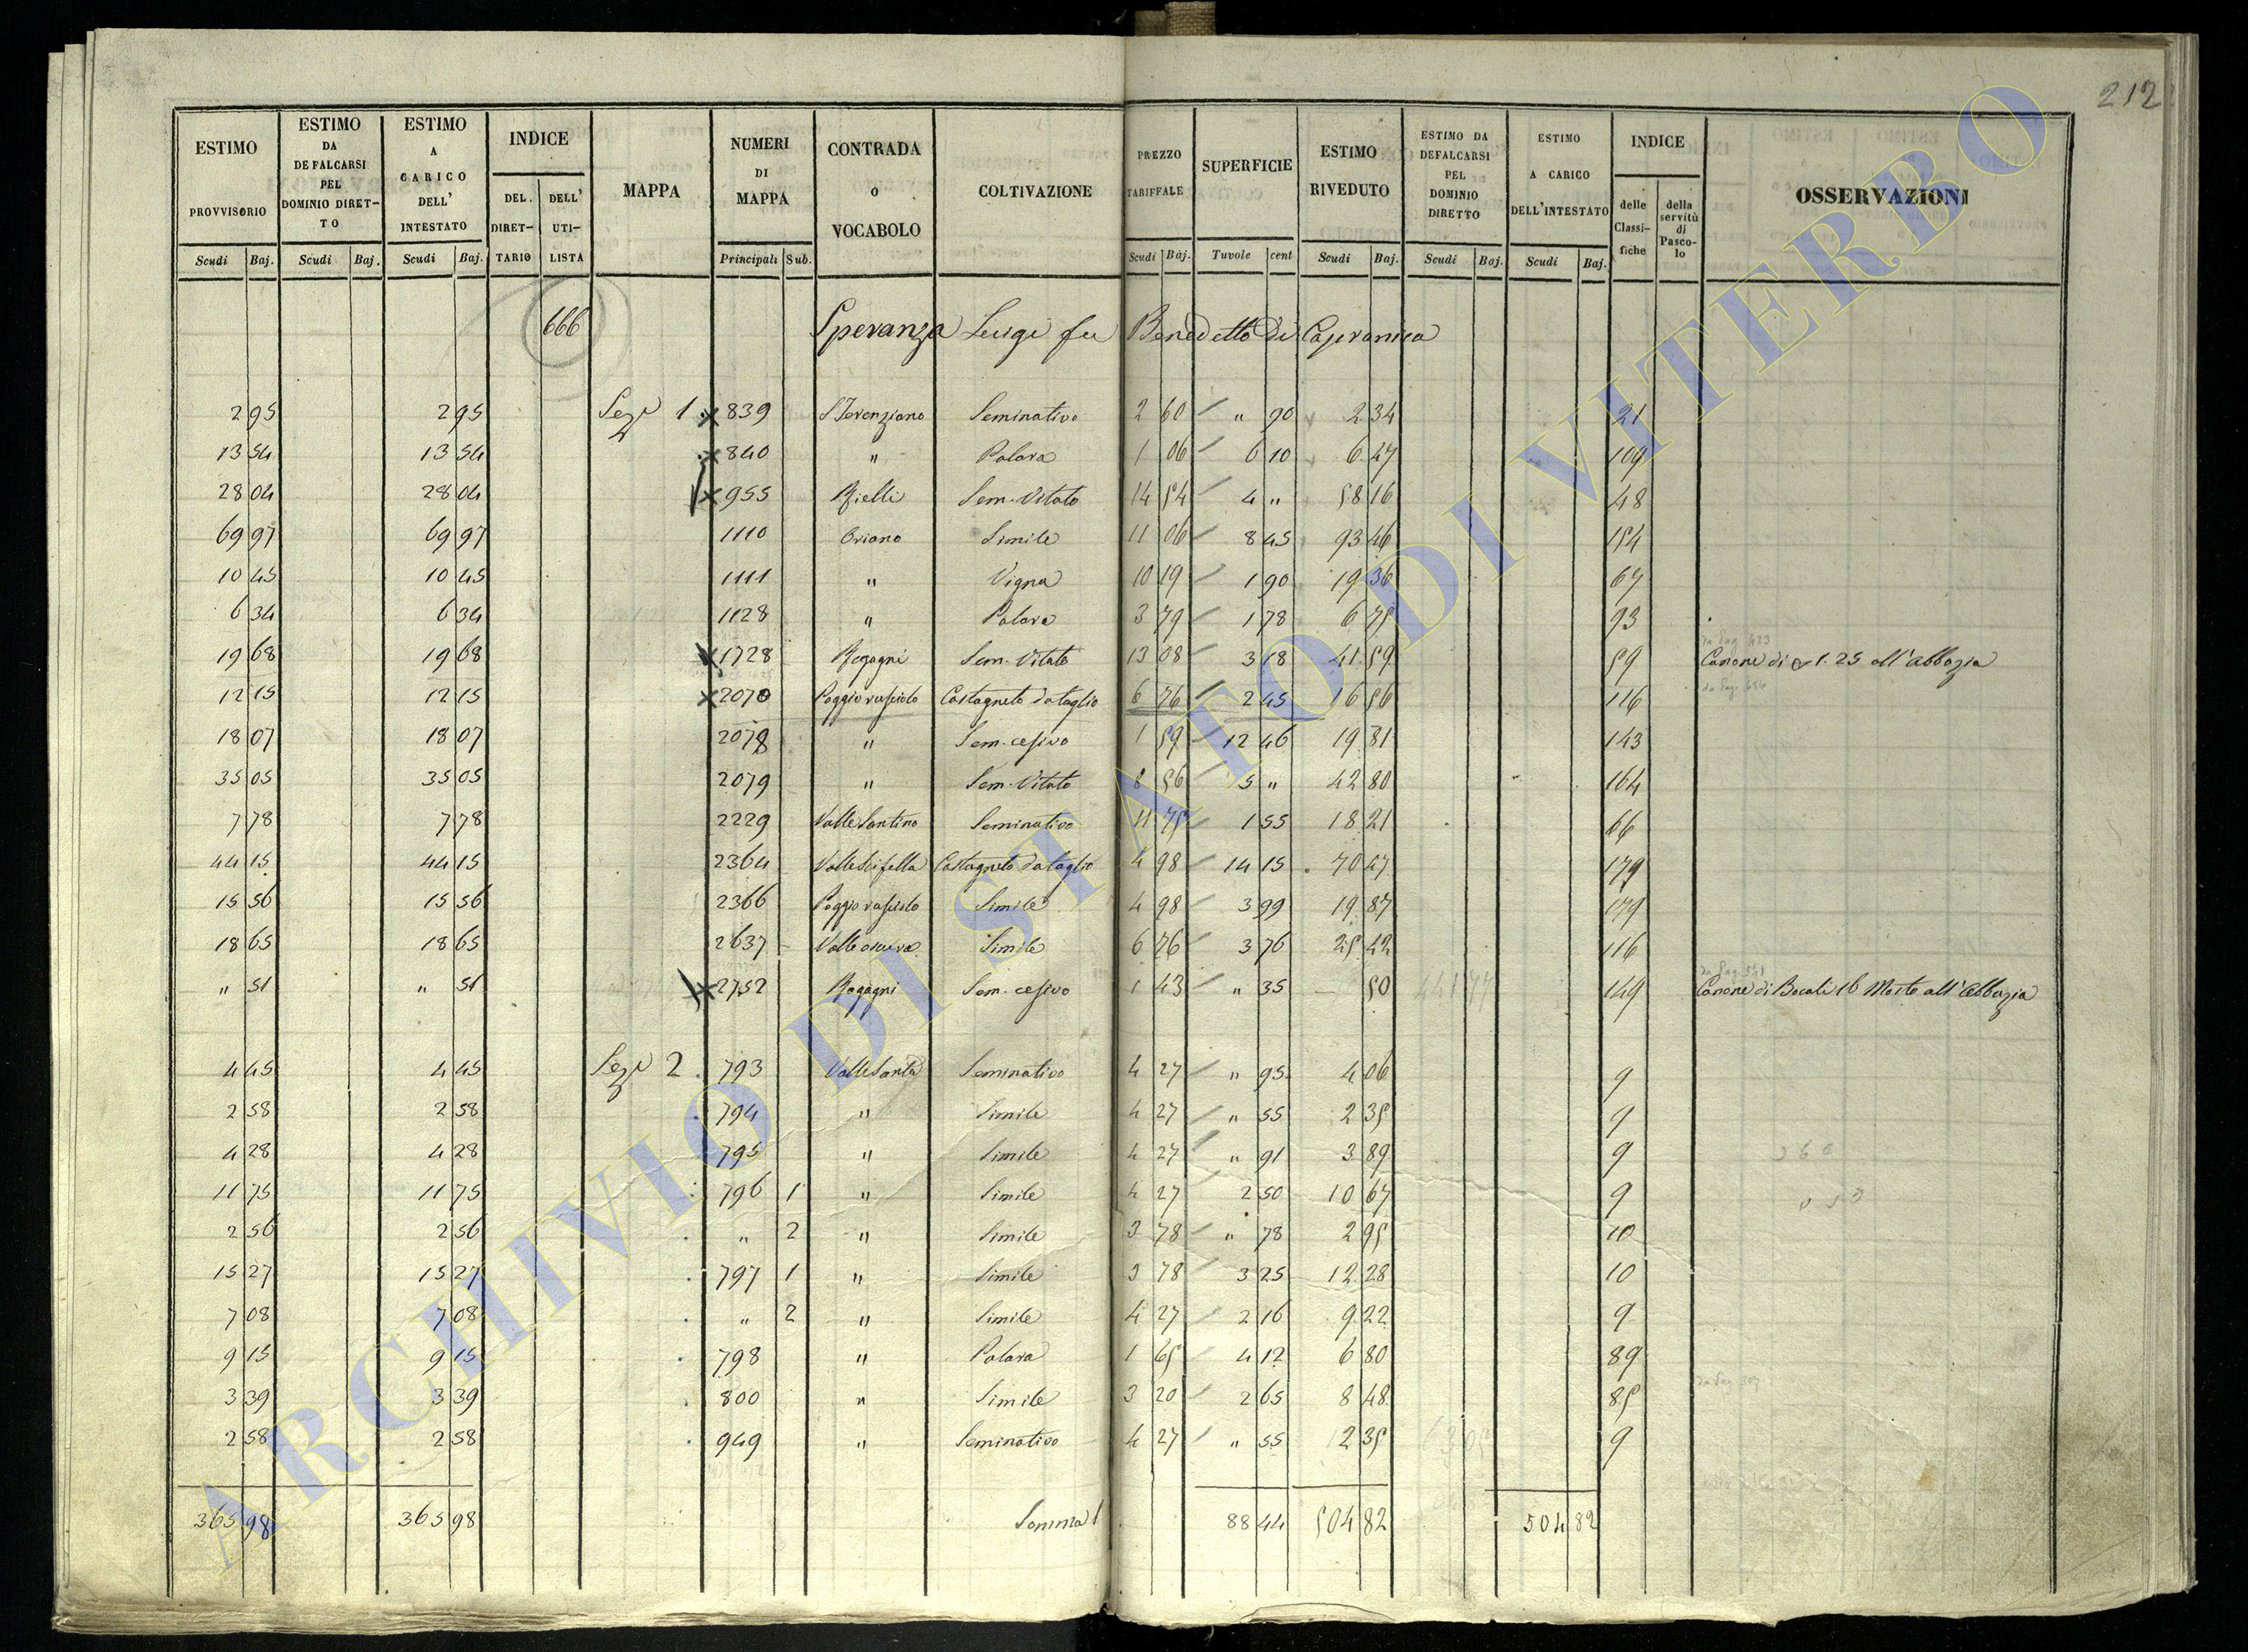 212
ESTIMO PROVVISORIO | ESTIMO DA DEFALCARSI PEL DOMINIO DIRETTO | ESTIMO A CARICO DELL' INTESTATO | INDICE DEL DIRETTARIO | DELL' UTILISTA | MAPPA | NUMERI DI MAPPA | CONTRADA o VOCABOLO | COLTIVAZIONE | PREZZO TARIFFALE | SUPERFICIE | ESTIMO RIVEDUTO | ESTIMO DA DEFALCARSI PEL DOMINIO DIRETTO | ESTIMO A CARICO DELL'INTESTATO | INDICE delle Classifiche | della servitù di Pascolo | OSSERVAZIONI
Scudi Baj. Scudi Baj. Scudi Baj. Principali Sub. Scudi Baj. Tavole cent Scudi Baj. Scudi Baj. Scudi Baj.
666 Speranza Luigi fu Benedetto di Capranica
2 95 2 95 Sez. 1 839 S Terenziano Seminativo 2 60 " 90 2 34 21
13 54 13 54 840 " Palara 1 06 6 10 6 47 109
28 04 28 04 955 Rielli Sem. Vitato 14 54 4 " 58 16 48
69 97 69 97 1110 Oriano Simile 11 06 8 45 93 46 154
10 45 10 45 1111 " Vigna 10 19 1 90 19 36 67
6 34 6 34 1128 " Palara 3 79 1 78 6 75 93
19 68 19 68 1728 Regagni Sem. Vitato 13 08 3 18 41 59 59 Canone di 1.25 all'abbazia
12 15 12 15 2070 Poggio rasciolo Castagneto da taglio 6 76 2 45 16 56 116
18 07 18 07 2078 " Sem. cesivo 1 59 12 46 19 81 143
35 05 35 05 2079 " Sem. Vitato 8 56 5 " 42 80 164
7 78 7 78 2229 Valle Santina Seminativo 11 75 1 55 18 21 66
44 15 44 15 2364 Castagneto da taglio 4 98 14 15 70 47 179
15 56 15 56 2366 Poggio rasciolo Simile 4 98 3 99 19 87 179
18 65 18 65 2637 Valle oscura Simile 6 76 3 76 25 42 116
" 51 " 51 2752 Ragagni Sem. cesivo 1 43 " 35 50 149 Canone di Bocali 16 Mosto all'Abbazia
4 45 4 45 Sez. 2 793 Valle Santa Seminativo 4 27 " 95 4 06 9
2 58 2 58 794 " Simile 4 27 " 55 2 35 9
4 28 4 28 795 " Simile 4 27 " 91 3 89 9
11 75 11 75 796 1 " Simile 4 27 2 50 10 67 9
2 56 2 56 " 2 " Simile 3 78 " 78 2 95 10
15 27 15 27 797 1 " Simile 3 78 3 25 12 28 10
7 08 7 08 " 2 " Simile 4 27 2 16 9 22 9
9 15 9 15 798 " Palara 1 65 4 12 6 80 89
3 39 3 39 800 " Simile 3 20 2 65 8 48 85
2 58 2 58 949 " Seminativo 4 27 " 55 2 35 9
365 98 365 98 Somma 88 44 504 82 504 82
ARCHIVIO DI STATO DI VITERBO